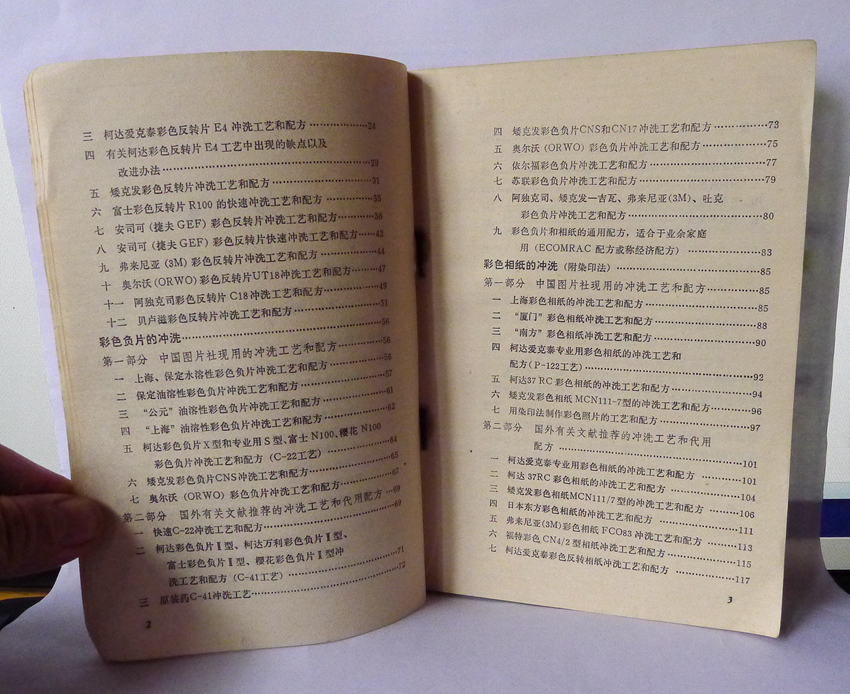 三 柯达爱克泰彩色反转片 E4 冲洗工艺和配方…………24
四 有关柯达彩色反转片 E4 工艺中出现的缺点以及
改进办法……………………………………29
五 矮克发彩色反转片冲洗工艺和配方…………………31
六 富士彩色反转片 R100 的快速冲洗工艺和配方………35
七 安司可(捷夫 GEF)彩色反转片冲洗工艺和配方……38
八 安司可(捷夫 GEF)彩色反转片快速冲洗工艺和配方……43
九 弗来尼亚(3M)彩色反转片冲洗工艺和配方…………44
十 奥尔沃(ORWO)彩色反转片UT18冲洗工艺和配方……47
十一 阿独克司彩色反转片 C18冲洗工艺和配方…………49
十二 贝卢滋彩色反转片冲洗工艺和配方………………51
彩色负片的冲洗……………………………………56
第一部分 中国图片社现用的冲洗工艺和配方…………56
一 上海、保定水溶性彩色负片冲洗工艺和配方…………56
二 保定油溶性彩色负片冲洗工艺和配方………………57
三 “公元”油溶性彩色负片冲洗工艺和配方……………61
四 “上海”油溶性彩色负片冲洗工艺和配方……………62
五 柯达彩色负片X型和专业用S型、富士N100、樱花N100
彩色负片冲洗工艺和配方(C-22工艺)……………64
六 矮克发彩色负片CNS冲洗工艺和配方………………65
七 奥尔沃(ORWO)彩色负片冲洗工艺和配方…………67
第二部分 国外有关文献推荐的冲洗工艺和代用配方…69
一 快速C-22冲洗工艺和配方……………………………69
二 柯达彩色负片Ⅱ型、柯达万利彩色负片Ⅱ型、
富士彩色负片Ⅱ型、樱花彩色负片Ⅱ型冲
洗工艺和配方(C-41工艺)…………………………71
三 原装药C-41冲洗工艺…………………………………72
2
四 矮克发彩色负片CNS和CN17冲洗工艺和配方…………73
五 奥尔沃(ORWO)彩色负片冲洗工艺和配方…………75
六 依尔福彩色负片冲洗工艺和配方……………………77
七 苏联彩色负片冲洗工艺和配方………………………79
八 阿独克司、矮克发—吉瓦、弗来尼亚(3M)、吐克
彩色负片冲洗工艺和配方……………………………80
九 彩色负片和相纸的通用配方,适合于业余家庭
用(ECOMRAC 配方或称经济配方)…………………83
彩色相纸的冲洗(附染印法)…………………………85
第一部分 中国图片社现用的冲洗工艺和配方…………85
一 上海彩色相纸的冲洗工艺和配方……………………85
二 “厦门”彩色相纸冲洗工艺和配方……………………88
三 “南方”彩色相纸冲洗工艺和配方……………………90
四 柯达爱克泰专业用彩色相纸的冲洗工艺和
配方(P-122工艺)………………………………92
五 柯达37 RC彩色相纸的冲洗工艺和配方………………94
六 矮克发彩色相纸 MCN111-7型的冲洗工艺和配方……96
七 用染印法制作彩色照片的工艺和配方………………97
第二部分 国外有关文献推荐的冲洗工艺和代用
配方…………………………………………101
一 柯达爱克泰专业用彩色相纸的冲洗工艺和配方……101
二 柯达 37RC彩色相纸的冲洗工艺和配方……………104
三 矮克发彩色相纸MCN111/7型的冲洗工艺和配方……106
四 日本东方彩色相纸的冲洗工艺和配方………………111
五 弗来尼亚(3M)彩色相纸 FCO83 冲洗工艺和配方……113
六 福特彩色 CN4/2 型相纸冲洗工艺和配方……………115
七 柯达爱克泰彩色反转相纸冲洗工艺和配方…………117
3